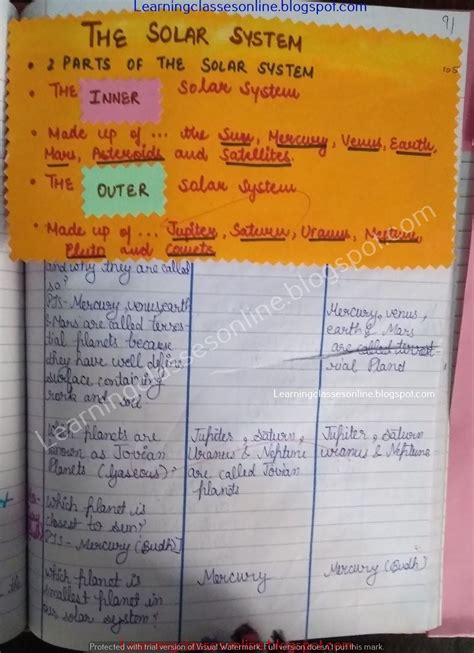 Learningclassesonline.blogspot.com
91
105
THE SOLAR SYSTEM
• 2 PARTS OF THE SOLAR SYSTEM
• THE INNER Solar System
• Made up of ... the Sun, Mercury, Venus, Earth,
Mars, Asteroids and Satellites.
• THE OUTER Solar System
• Made up of ... Jupiter, Saturn, Uranus, Neptune,
Pluto and Comets
Learningclassesonline.blogspot.com
and why they are called
so?
PTS- Mercury, venus, earth
& Mars are called terres-
tial planets because
they have well define
surface containing
rock and
Mercury, venus,
earth & Mars
are called terrest
rial Pland
Learningclassesonline.blogspot.com
Which planets are
known as Jovian
Planets (Gaseous)?
Jupiter, Saturn,
Uranus & Neptune
are called Jovian
planets
Jupiter, Saturn
uranus & Neptune
Which planet is
closest to sun?
PTS- Mercury (Budh)
Which planet is
smallest planet in
our solar system?
Mercury
Mercury (Budh)
Protected with trial version of Visual Watermark. Full version doesn't put this mark.